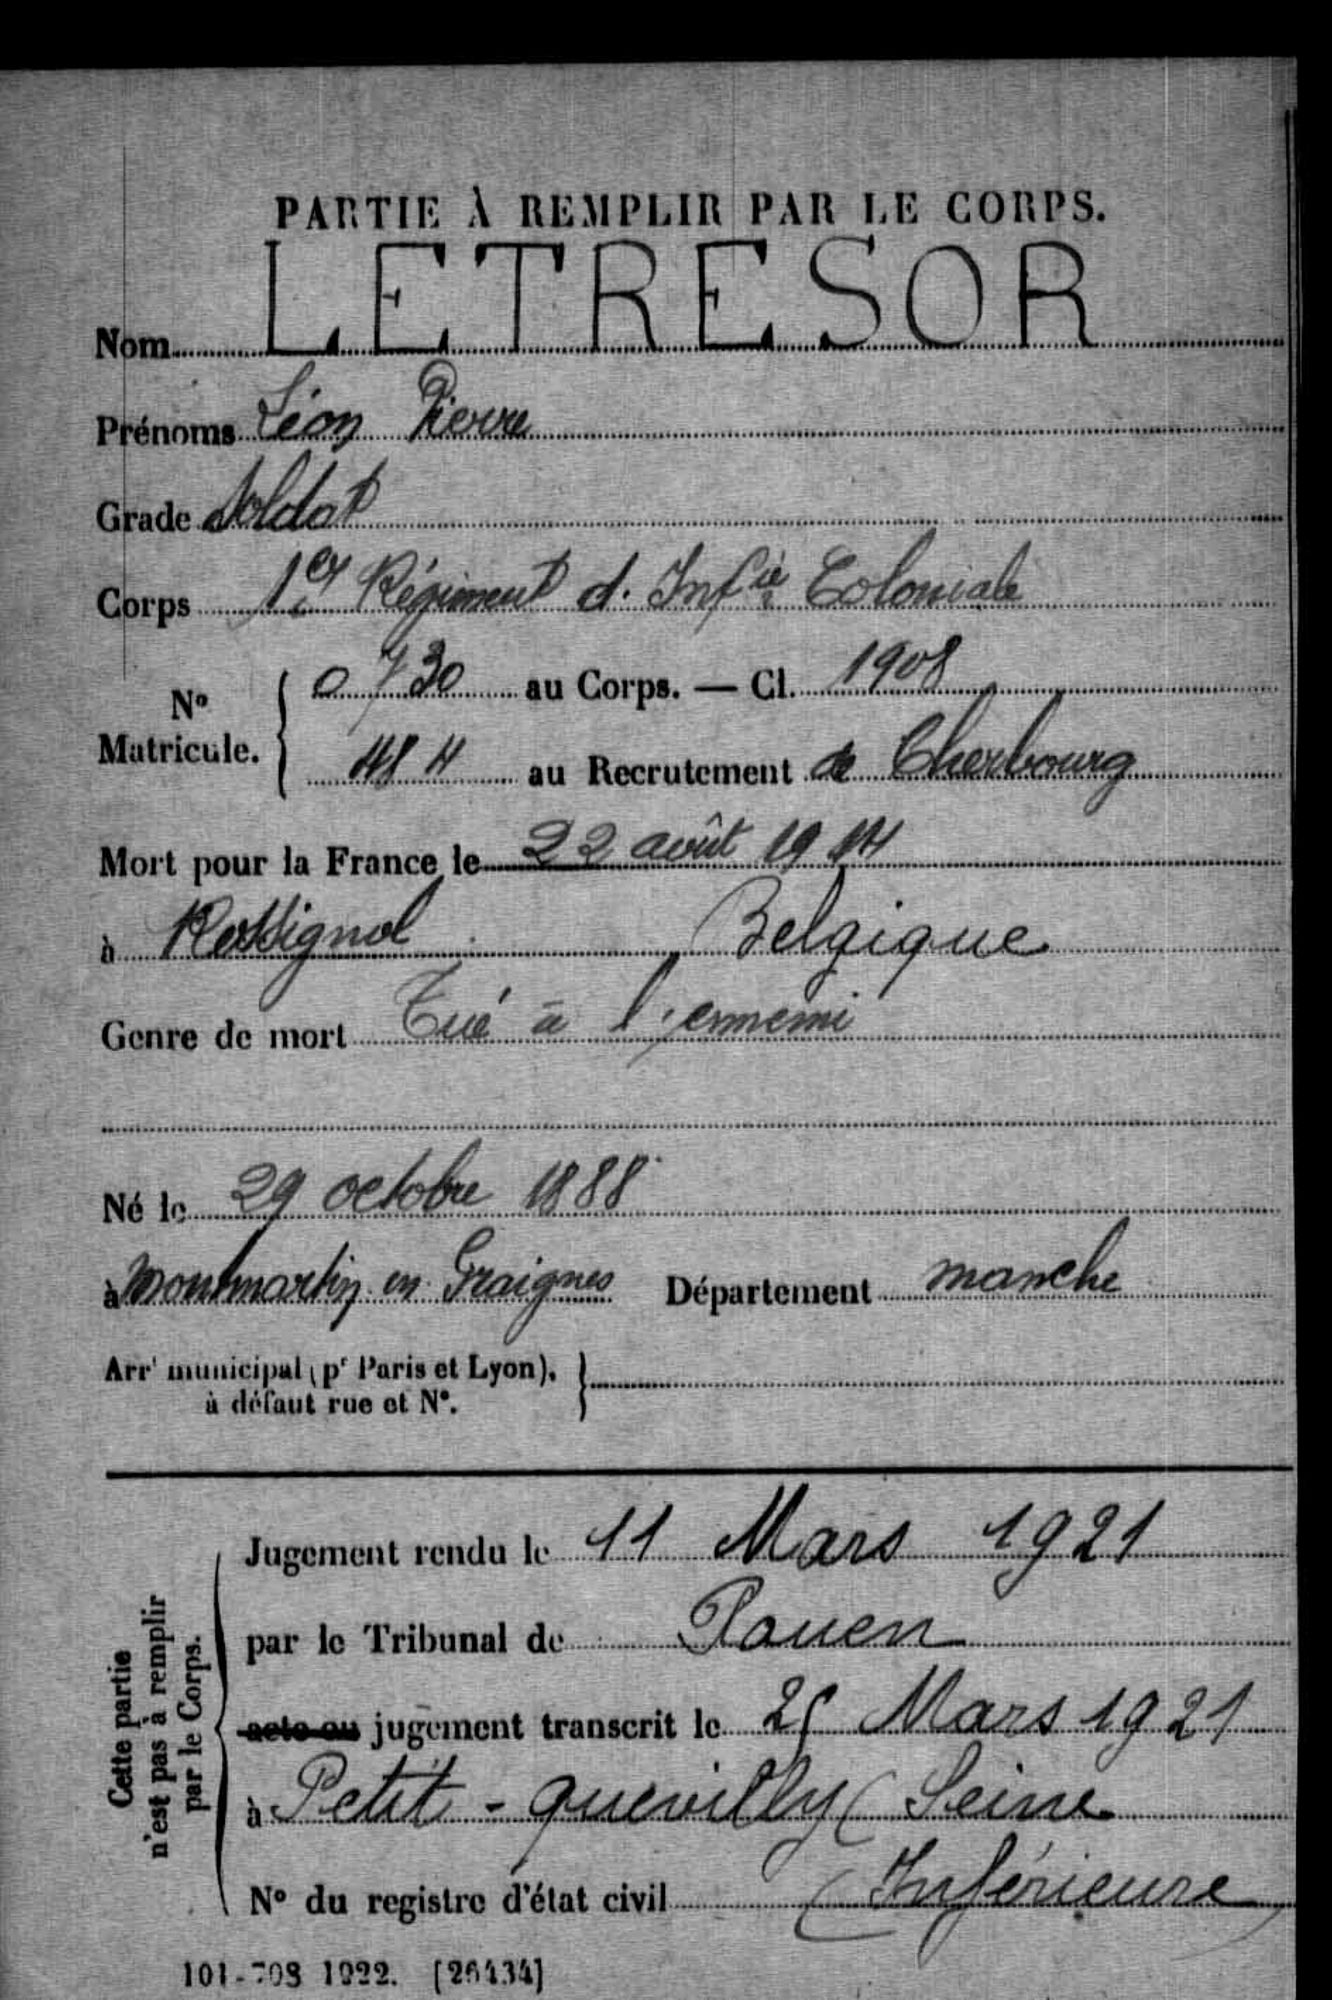 PARTIE À REMPLIR PAR LE CORPS.
Nom LETRESOR
Prénoms Léon Pierre
Grade Soldat
Corps 1er Régiment d. Infie Coloniale
No Matricule. { 0730 au Corps. — Cl. 1908
484 au Recrutement de Cherbourg
Mort pour la France le 22 août 1914
à Rossignol Belgique
Genre de mort Tué à l'ennemi
Né le 29 octobre 1888
à Montmartin en Graignes Département manche
Arrt municipal (pr Paris et Lyon), }
à défaut rue et N°.
Cette partie
n'est pas à remplir
par le Corps.
Jugement rendu le 11 Mars 1921
par le Tribunal de Rouen
acte ou jugement transcrit le 25 Mars 1921
à Petit-quevilly (Seine
N° du registre d'état civil (Inférieure)
101-708 1922. [26434]